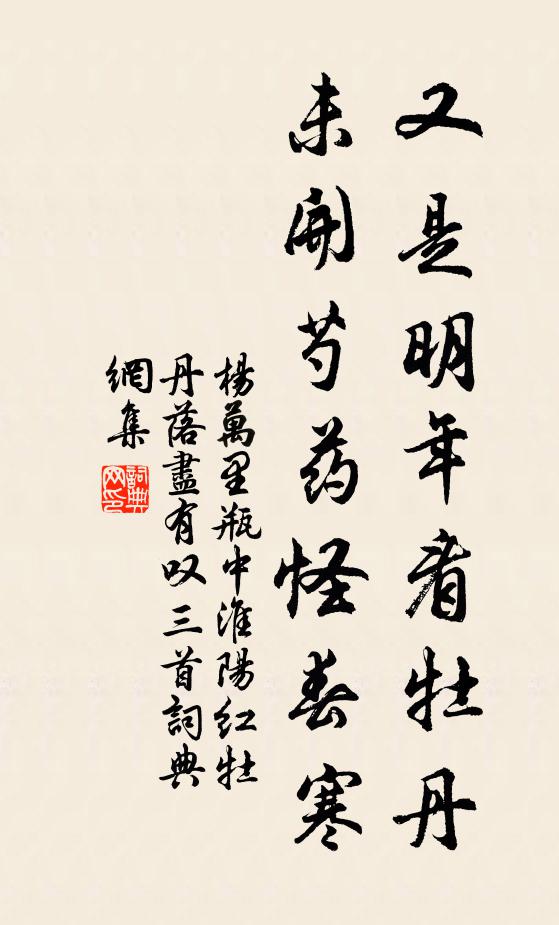 又是明年看牡丹
未開芍药怪春寒
楊萬里瓶中淮陽红牡
丹落盡有叹三首詞典
網集
詞典网印